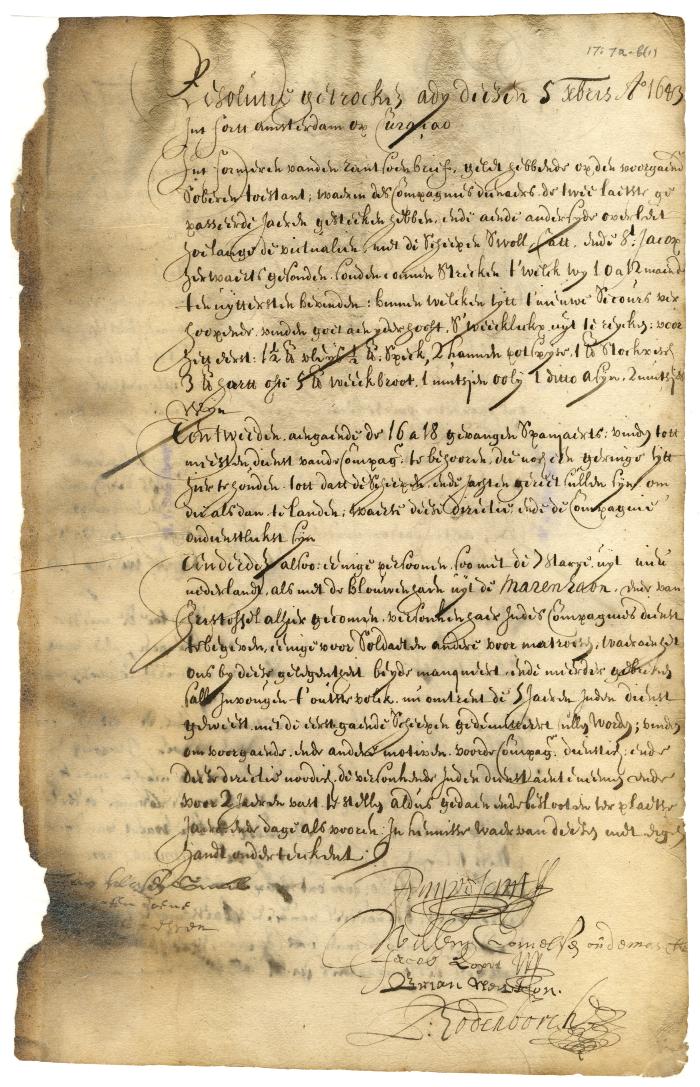 17: 7a-b(1)
Resolutie getrocken ady desen 5 xbris Ao 1643
Int fortt Amsterdam op Curaçao
Int formeren vanden rantsoenbrief, gelet hebbende op den voorgaende
Soberen toestant; waerin des Compagnies dienaers de twee laetste ge
passeerde Jaeren gesteecken hebben, ende aende ander syde overleit
hoelange de victualien, met de Scheepen Swoll, Catt, ende St. Jacop
herwaerts gesonden, souden connen Strecken t'welck wy 10 a 12 maende
ten uyttersten bevinden: binnen welcken tytt t'nieuwe Secours ver
hoopende, vinden goet aen yder hooft, S'weecklyckx uyt te reycken: voor
heti eerst: 1½ ℔ vleys ½ ℔: Speck, 2 kannen potspyse, 1 ℔ Stockvisch
3 ℔ hartt ofte 5 ℔ weeckbroot, 1 mutsjen ooly 1 ditto asyn, 2 mutsjes
Wyn
Ten tweeden, aengaende de 16 a 18 gevangen Spanjaerts; vinden tott
meesten dienst vande Compag: te behooren, die noch een geringe tytt
hier te houden, tott datt de Scheepen, ende Jachten gereet sullen syn, om
die als dan te landen, waerse dese directie ende de Compagnie
ondienstlickst syn
Ten derden alsoo: eenige persoonen, soo met de nieu
nederlandt, als met de Blouwenhaen uyt de Marenhaon, ende van
Christoffel alhier gecomen, versoucken haer Indes Compagnies dienst
te begeven, eenige voor Soldaeten andere voor matroosen, waer aen het
ons by dese gelegentheit beyde manqueert, ende meerder gebreken
sall, Invougen t'outste volck, nu omtrent de 5 Jaeren Inden dienst
geweest, met de eerstgaende Scheepen gedemitteert sullen worden; vinden
om voorgaende, ende andere motiven, voorde Compag: dienstich, ende
dese directie noodich, de versouckende Inden dienst aen te neemen ende
voor 2 Jaeren vast te stellen aldus gedaen ende besloten ter plaetse
Jaere ende dage als vooren: In kennisse waer van desen mett eygen
handt onderteeckent
Willem Cornelsen oudemarckt
Jacob Loper
Brian Newton.
L: Rodenborch